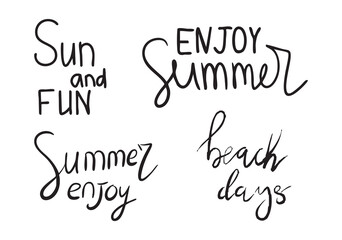 Sun
and
FUN
ENJOY
Summer
Summer
enjoy
beach
days